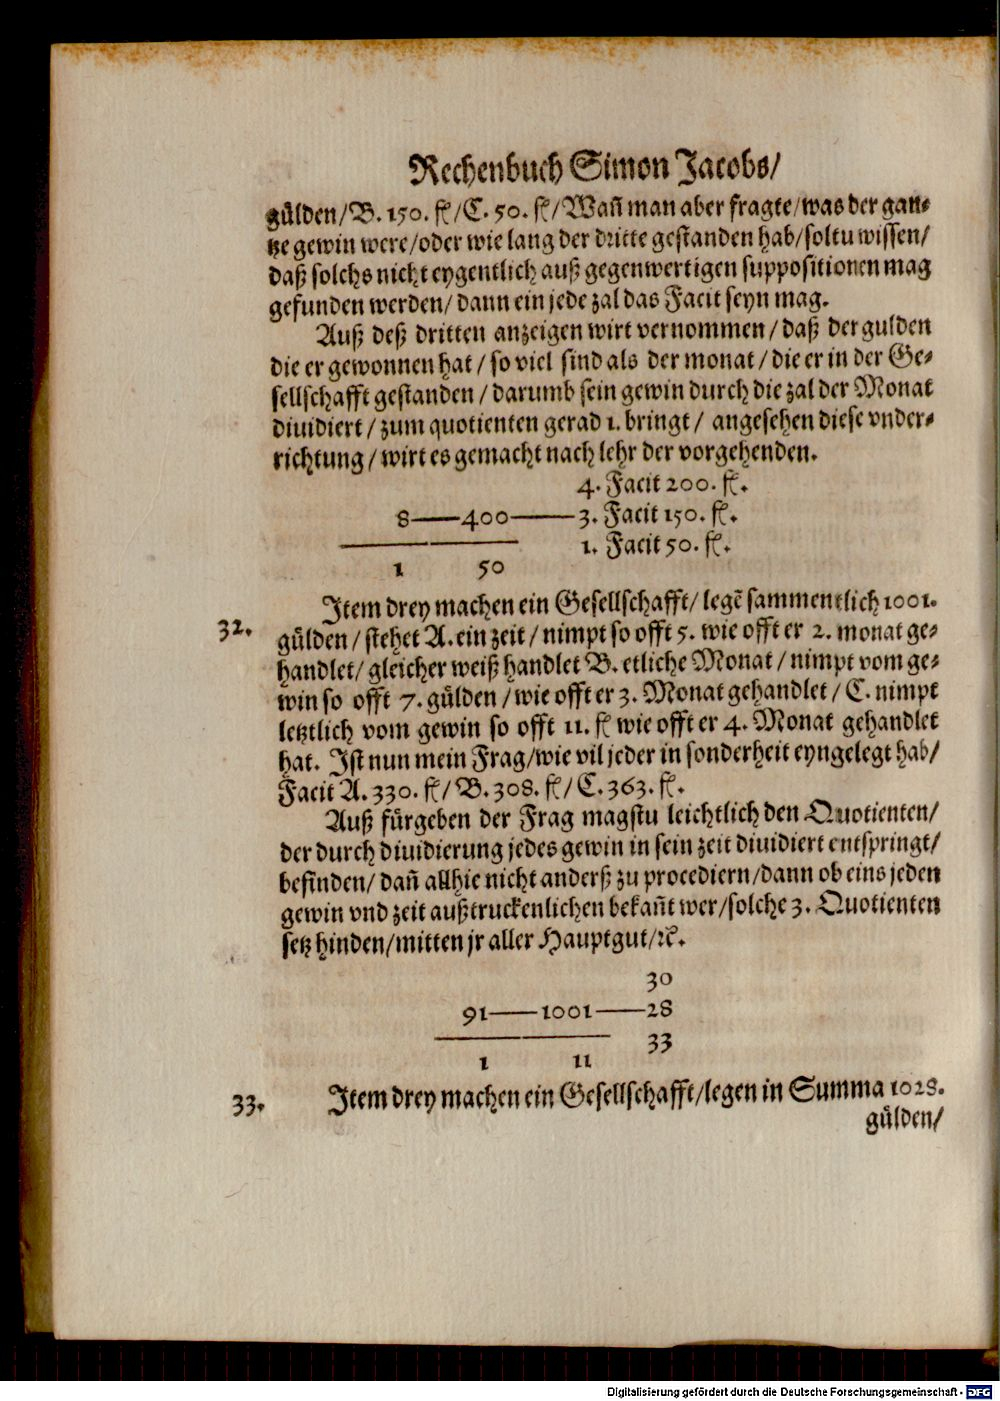 Rechenbuch Simon Jacobs/
gülden/B. 150. fl/C. 50. fl/Wañ man aber fragte/was der gan-
tze gewin were/oder wie lang der dritte gestanden hab/soltu wissen/
daß solchs nicht eygentlich auß gegenwertigen suppositionen mag
gefunden werden/ dann ein jede zal das Facit seyn mag.
Auß deß dritten anzeigen wirt vernommen/ daß der gulden
die er gewonnen hat / so viel sind als der monat / die er in der Ge-
sellschafft gestanden / darumb sein gewin durch die zal der Monat
diuidiert / zum quotienten gerad 1. bringt / angesehen diese vnder-
richtung / wirt es gemacht nach lehr der vorgehenden.
4. Facit 200. fl.
8——400——3. Facit 150. fl.
1. Facit 50. fl.
1 50
Item drey machen ein Gesellschafft/ legē sammentlich 1001.
32. gülden / stehet A. ein zeit / nimpt so offt 5. wie offt er 2. monat ge-
handlet/ gleicher weiß handlet B. etliche Monat / nimpt vom ge-
win so offt 7. gülden / wie offt er 3. Monat gehandlet / C. nimpt
letztlich vom gewin so offt 11. fl wie offt er 4. Monat gehandlet
hat. Ist nun mein Frag/wie vil jeder in sonderheit eyngelegt hab/
Facit A. 330. fl/ B. 308. fl/ C. 363. fl.
Auß fürgeben der Frag magstu leichtlich den Quotienten/
der durch diuidierung jedes gewin in sein zeit diuidiert entspringt/
befinden/ dañ allhie nicht anderß zu procediern/dann ob eins jeden
gewin vnd zeit außtruckenlichen bekañt wer/solche 3. Quotienten
setz hinden/mitten jr aller Hauptgut/ꝛc.
30
91——1001——28
33
1 11
33. Item drey machen ein Gesellschafft/legen in Summa 1028.
gülden/
Digitalisierung gefördert durch die Deutsche Forschungsgemeinschaft - DFG